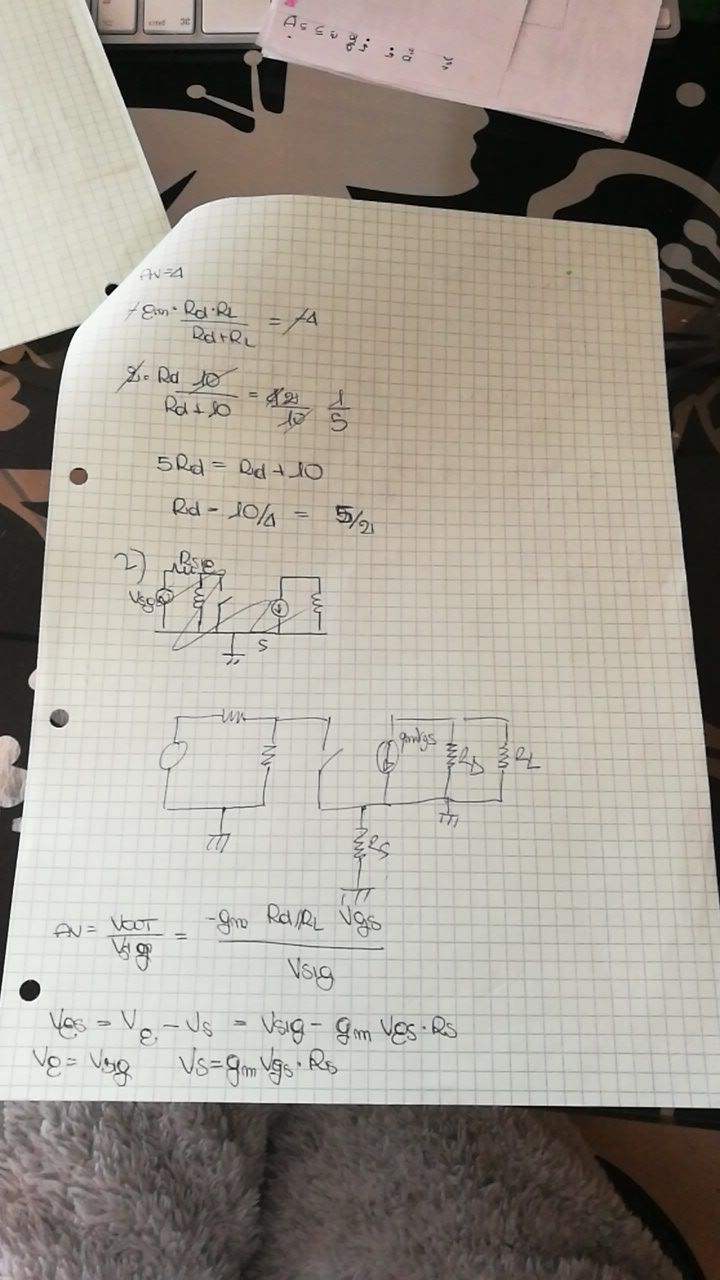 AV=4
-gm · Rd·RL / Rd+RL = -4
2· Rd 10 / Rd+10 = 42 / 10 1/5
5Rd = Rd + 10
Rd - 10/4 = 5/2
2) Rsig
Vsg
S
gmVgs RD RL
RS
AV = VOUT / Vsig = -gm Rd//RL Vgs / Vsig
Vgs = Vg - Vs = Vsig - gm Vgs · Rs
Vg = Vsig Vs = gm Vgs · Rs